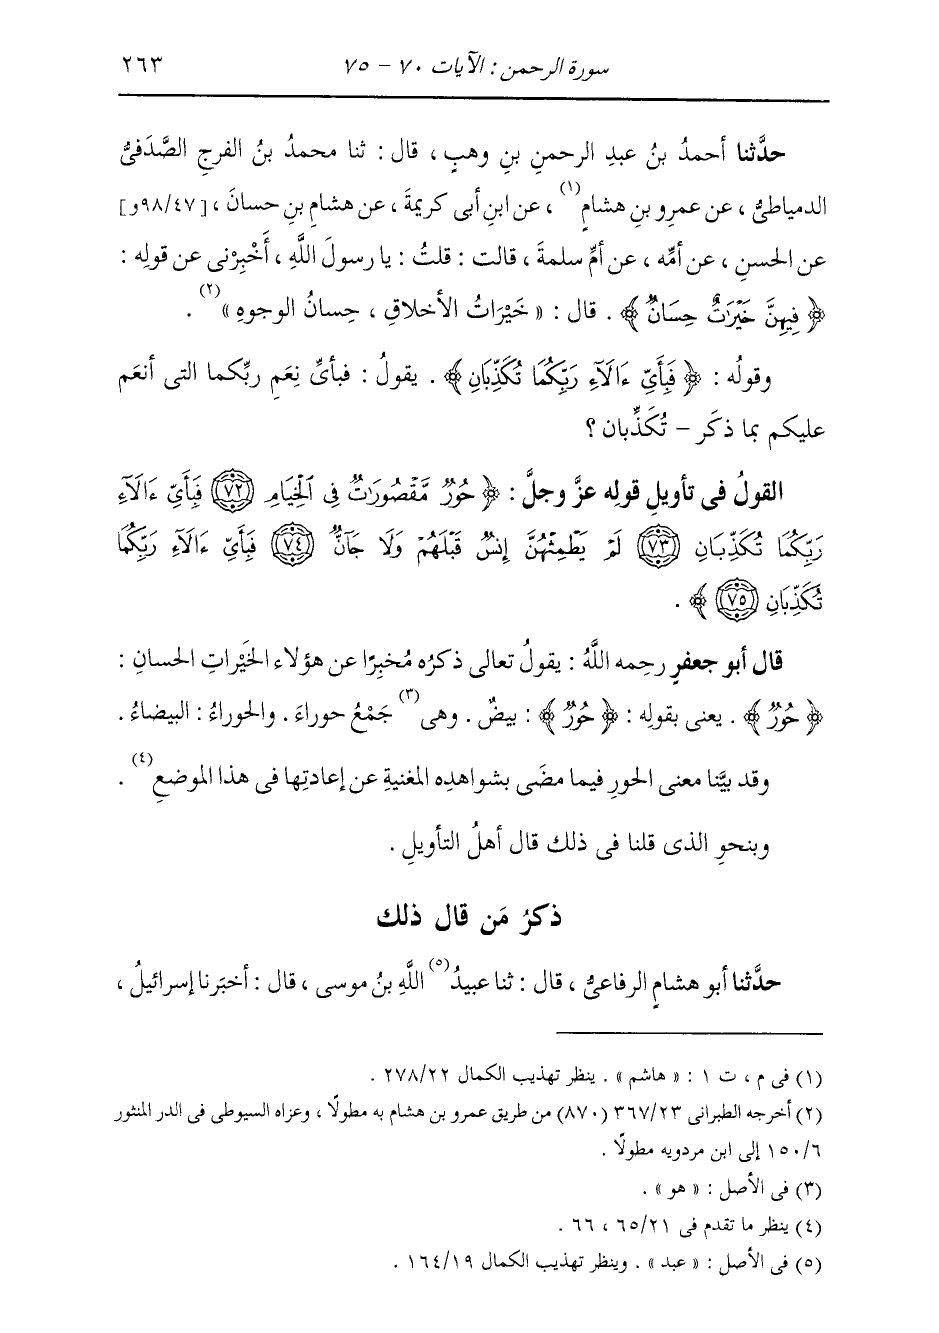 سورة الرحمن : الآيات ٧٠ - ٧٥ ٢٦٣
حدَّثنا أحمدُ بنُ عبدِ الرحمنِ بنِ وهبٍ ، قال : ثنا محمدُ بنُ الفرجِ الصَّدَفىُّ
الدمياطىُّ ، عن عمرِو بنِ هشامٍ(١) ، عن ابنِ أبى كريمةَ ، عن هشامِ بنِ حسانَ ، [٩٨/٤٧و]
عن الحسنِ ، عن أمِّه ، عن أمِّ سلمةَ ، قالت : قلتُ : يا رسولَ اللَّهِ ، أَخْبِرْنى عن قولِه :
﴿ فِيهِنَّ خَيْرَٰتٌ حِسَانٌ ﴾ . قال : « خَيْرَاتُ الأخلاقِ ، حِسانُ الوجوهِ »(٢) .
وقولُه : ﴿ فَبِأَىِّ ءَالَآءِ رَبِّكُمَا تُكَذِّبَانِ ﴾ . يقولُ : فبأىِّ نِعَمِ ربِّكما التى أنعَم
عليكم بما ذكَر – تُكَذِّبان ؟
القولُ فى تأويلِ قولِه عزَّ وجلَّ : ﴿ حُورٌ مَّقْصُورَٰتٌ فِى ٱلْخِيَامِ (٧٢) فَبِأَىِّ ءَالَآءِ
رَبِّكُمَا تُكَذِّبَانِ (٧٣) لَمْ يَطْمِثْهُنَّ إِنسٌ قَبْلَهُمْ وَلَا جَآنٌّ (٧٤) فَبِأَىِّ ءَالَآءِ رَبِّكُمَا
تُكَذِّبَانِ (٧٥) ﴾ .
قال أبو جعفرٍ رحِمه اللَّهُ : يقولُ تعالى ذكرُه مُخبِرًا عن هؤلاء الخَيْراتِ الحسانِ :
﴿ حُورٌ ﴾ . يعنى بقولِه : ﴿ حُورٌ ﴾ : بيضٌ . وهى(٣) جَمْعُ حوراءَ . والحوراءُ : البيضاءُ .
وقد بيَّنا معنى الحورِ فيما مضَى بشواهدِه المغنيةِ عن إعادتِها فى هذا الموضعِ(٤) .
وبنحوِ الذى قلنا فى ذلك قال أهلُ التأويلِ .
ذكرُ مَن قال ذلك
حدَّثنا أبو هشامٍ الرفاعىُّ ، قال : ثنا عبيدُ(٥) اللَّهِ بنُ موسى ، قال : أخبَرنا إسرائيلُ ،
(١) فى م ، ت ١ : « هاشم » . ينظر تهذيب الكمال ٢٧٨/٢٢ .
(٢) أخرجه الطبرانى ٣٦٧/٢٣ (٨٧٠) من طريق عمرو بن هشام به مطولًا ، وعزاه السيوطى فى الدر المنثور
١٥٠/٦ إلى ابن مردويه مطولًا .
(٣) فى الأصل : « هو » .
(٤) ينظر ما تقدم فى ٦٥/٢١ ، ٦٦ .
(٥) فى الأصل : « عبد » . وينظر تهذيب الكمال ١٦٤/١٩ .